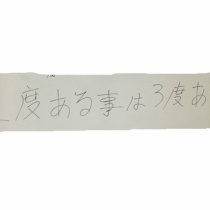 度ある事は3度あ